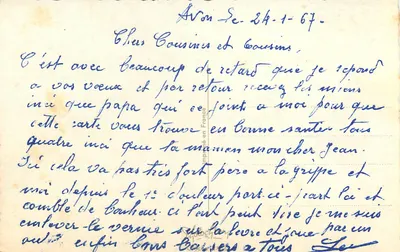 Avon le 24-1-67-
Chers Cousines et Cousins,
C'est avec beaucoup de retard que je repond
a vos vœux et par retour recevez les miens
insi que papa qui ce joint a moi pour que
cette carte vous trouve en bonne santée tous
quatre insi que ta maman mon cher Jean.
Ici cela va pas très fort père a la grippe et
moi depuis le 1e douleur part ci-part là et
comble de bonheur si l'ont peut dire je me suis
enlever le vernie sur la levre et joue par un
enfin Bons Baisers a tous